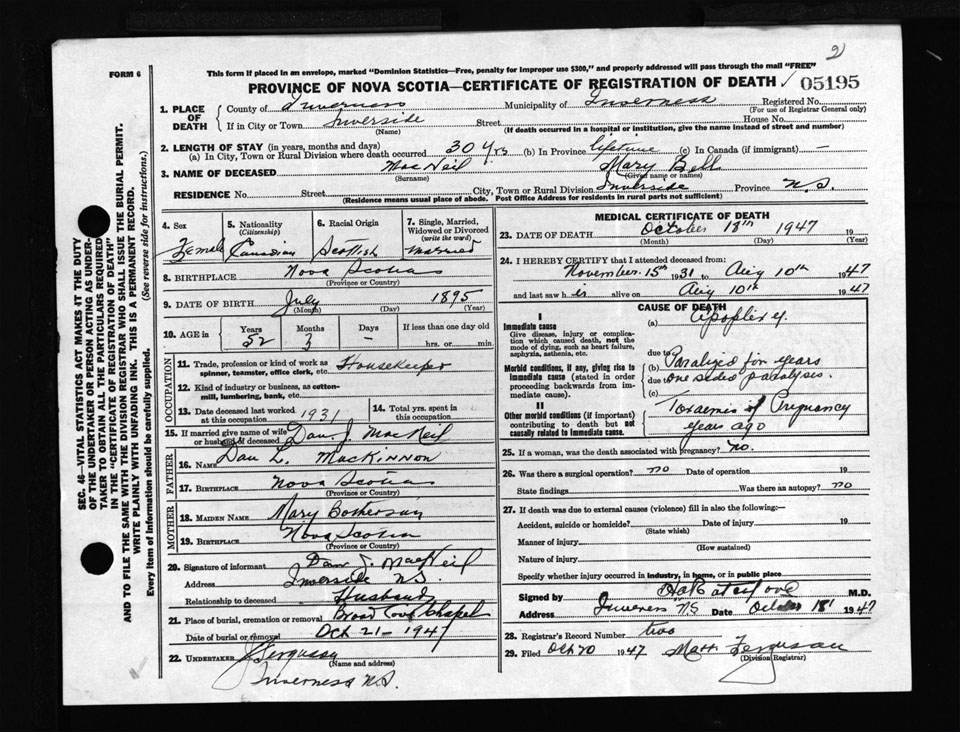 2)
FORM 6
This form if placed in an envelope, marked "Dominion Statistics—Free, penalty for improper use $300," and properly addressed will pass through the mail "FREE"
PROVINCE OF NOVA SCOTIA—CERTIFICATE OF REGISTRATION OF DEATH ✓ 05195
SEC. 46—VITAL STATISTICS ACT MAKES IT THE DUTY
OF THE UNDERTAKER OR PERSON ACTING AS UNDER-
TAKER TO OBTAIN ALL THE PARTICULARS REQUIRED
IN THE "CERTIFICATE OF REGISTRATION OF DEATH"
AND TO FILE THE SAME WITH THE DIVISION REGISTRAR WHO SHALL ISSUE THE BURIAL PERMIT.
WRITE PLAINLY WITH UNFADING INK. THIS IS A PERMANENT RECORD.
Every item of information should be carefully supplied. (See reverse side for instructions.)
1. PLACE OF DEATH
County of Inverness Municipality of Inverness Registered No.
(For use of Registrar General only)
If in City or Town Inverside Street House No.
(Name) (If death occurred in a hospital or institution, give the name instead of street and number)
2. LENGTH OF STAY (in years, months and days)
(a) In City, Town or Rural Division where death occurred 30 yrs (b) In Province lifetime (c) In Canada (if immigrant) —
3. NAME OF DECEASED MacNeil Mary Bell
(Surname) (Given name or names)
RESIDENCE No. Street City, Town or Rural Division Inverside Province N.S.
(Residence means usual place of abode. Post Office Address for residents in rural parts not sufficient)
4. Sex
Female
5. Nationality
(Citizenship)
Canadian
6. Racial Origin
Scottish
7. Single, Married,
Widowed or Divorced
(write the word)
Married
8. BIRTHPLACE Nova Scotia
(Province or Country)
9. DATE OF BIRTH July 1895
(Month) (Day) (Year)
10. AGE in Years Months Days If less than one day old
52 3 — hrs. or min.
OCCUPATION
11. Trade, profession or kind of work as Housekeeper
spinner, teamster, office clerk, etc.
12. Kind of industry or business, as cotton-
mill, lumbering, bank, etc.
13. Date deceased last worked
at this occupation 1931
14. Total yrs. spent in
this occupation
15. If married give name of wife
or husband of deceased Dan J. MacNeil
FATHER
16. NAME Dan L. MacKinnon
17. BIRTHPLACE Nova Scotia
(Province or Country)
MOTHER
18. MAIDEN NAME Mary
19. BIRTHPLACE Nova Scotia
(Province or Country)
20. Signature of informant Dan J. MacNeil
Address Inverside N.S.
Relationship to deceased Husband
21. Place of burial, cremation or removal Broad Cove Chapel
Date of burial or removal Oct 21 - 1947
22. UNDERTAKER
(Name and address)
Inverness N.S.
MEDICAL CERTIFICATE OF DEATH
23. DATE OF DEATH October 18th 1947 19
(Month) (Day) (Year)
24. I HEREBY CERTIFY that I attended deceased from:
November 15th 1931 to Aug 10th 1947
and last saw h is alive on Aug 10th 1947
CAUSE OF DEATH
I
Immediate cause
Give disease, injury or complica-
tion which caused death, not the
mode of dying, such as heart failure,
asphyxia, asthenia, etc.
(a) Apoplexy.
due to
Morbid conditions, if any, giving rise to
immediate cause (stated in order
proceeding backwards from im-
mediate cause).
(b) Paralized for years
due to one sided paralysis.
(c)
II
Other morbid conditions (if important)
contributing to death but not
causally related to immediate cause.
Toxaemia of Pregnancy
years ago
25. If a woman, was the death associated with pregnancy? no.
26. Was there a surgical operation? no Date of operation 19
State findings Was there an autopsy? no
27. If death was due to external causes (violence) fill in also the following:—
Accident, suicide or homicide? Date of injury 19
(State which)
Manner of injury
(How sustained)
Nature of injury
Specify whether injury occurred in industry, in home, or in public place
Signed by M.D.
Address Inverness N.S. Date October 18 1947
28. Registrar's Record Number two
29. Filed Oct 20 1947 Matt. Ferguson
(Division Registrar)